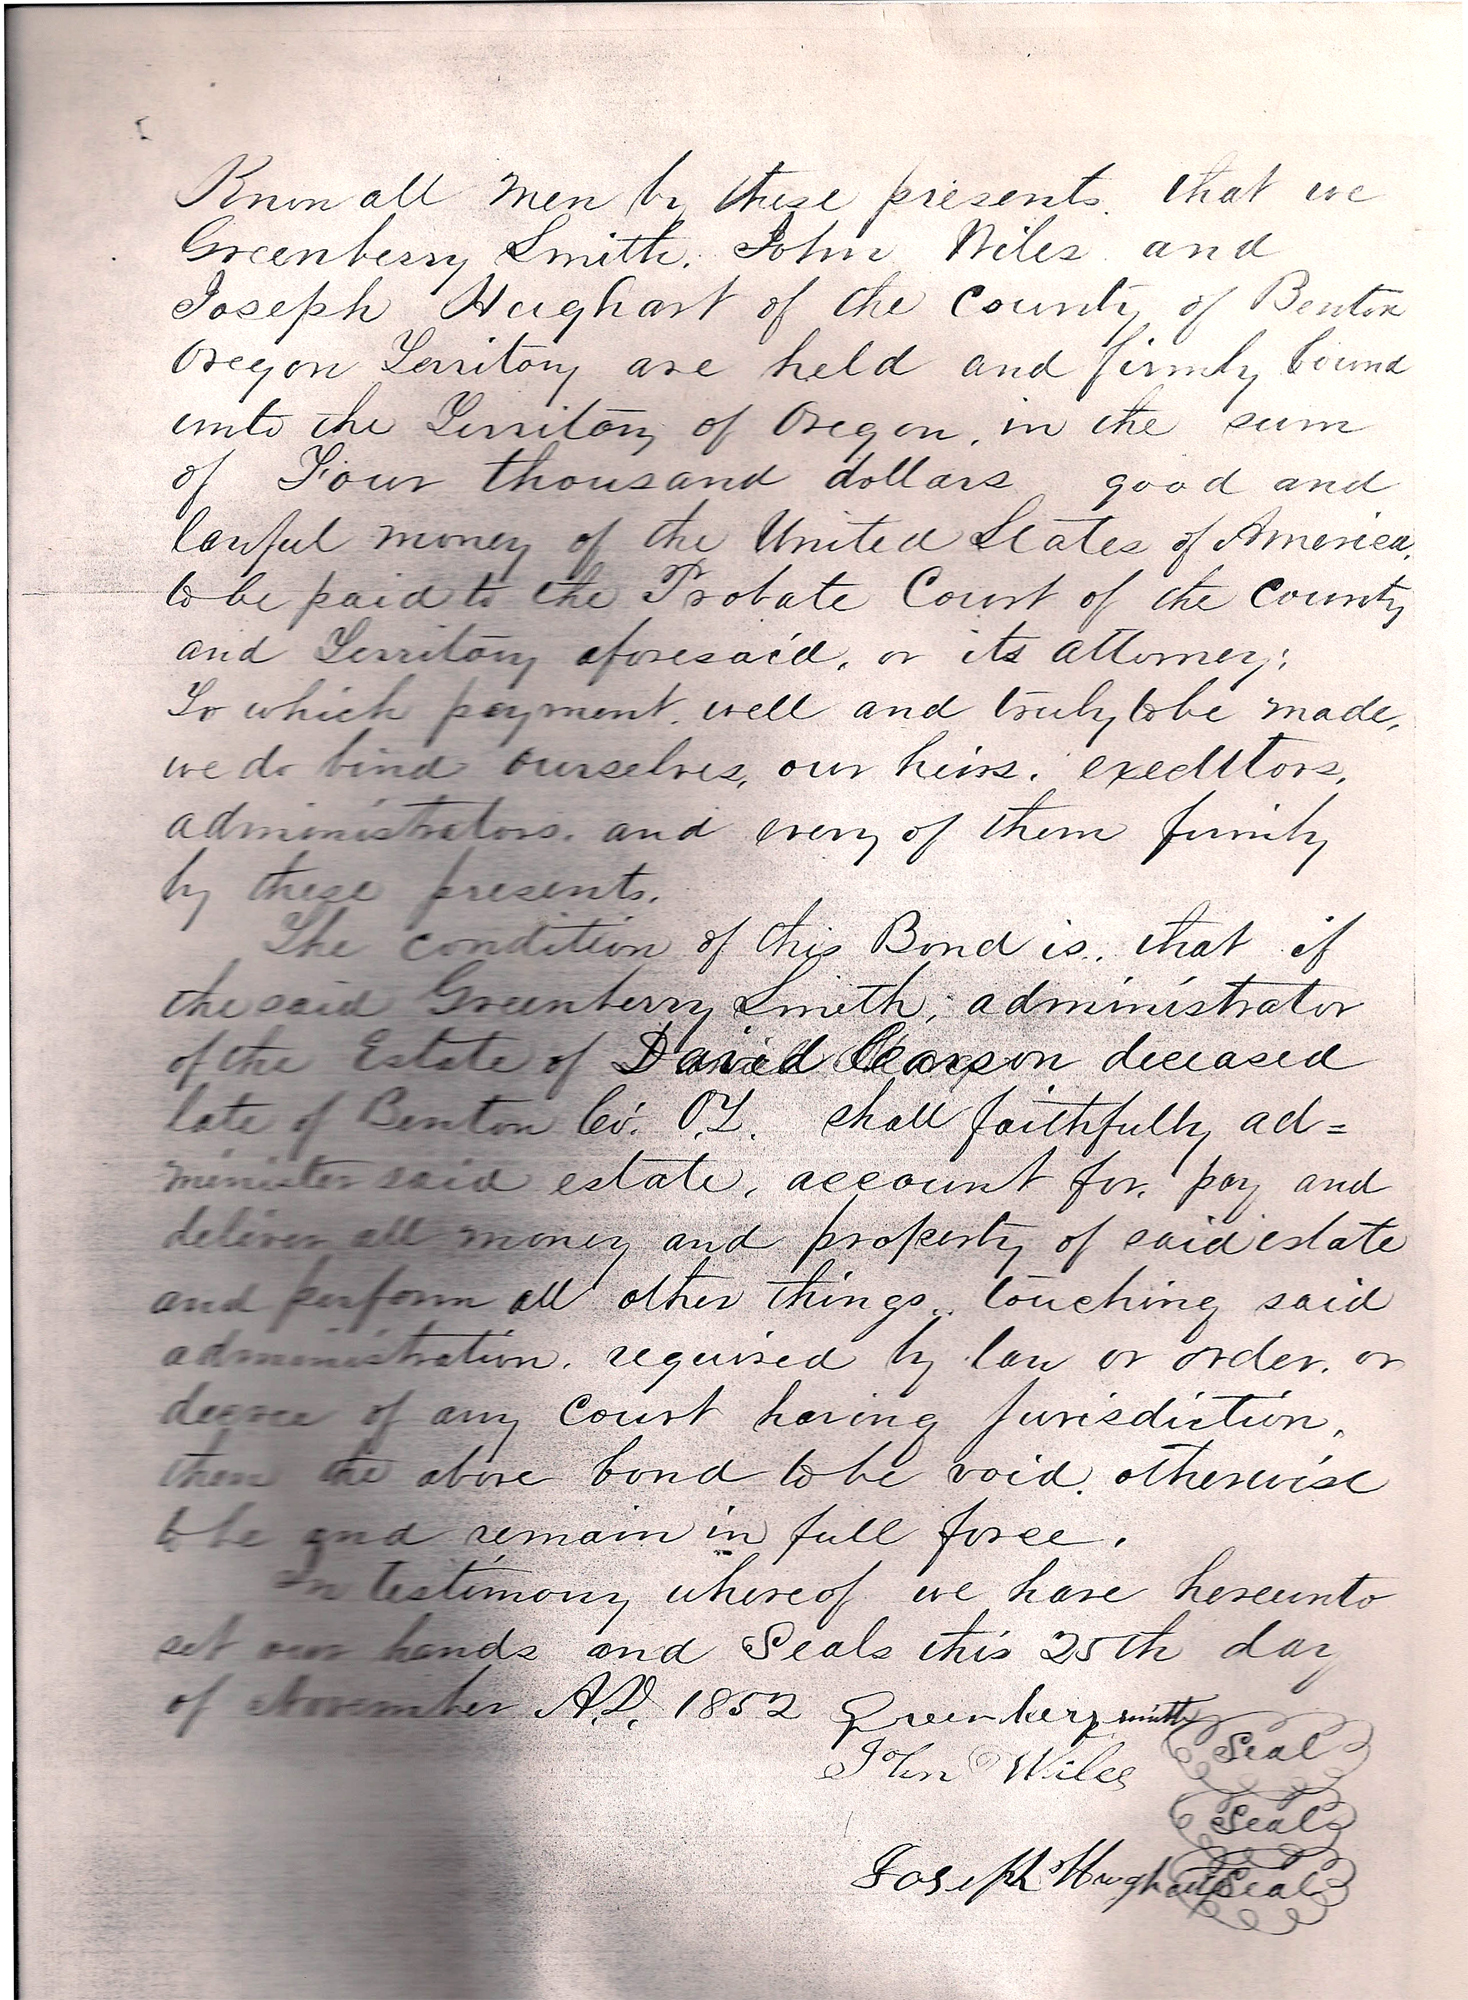 Know all men by these presents. that we
Greenberry Smith. John Wiles and
Joseph Hughart of the County of Benton
Oregon Territory are held and firmly bound
unto the Territory of Oregon, in the sum
of Four thousand dollars good and
lawful money of the United States of America.
to be paid to the Probate Court of the County
and Territory aforesaid, or its attorney;
To which payment. well and truly to be made,
we do bind ourselves, our heirs. executors,
administrators. and every of them firmly
by these presents.
The condition of this Bond is. that if
the said Greenberry Smith, administrator
of the Estate of David Pearson deceased
late of Benton Co. O.T. shall faithfully ad=
minister said estate, account for, pay and
deliver all money and property of said estate
and perform all other things, touching said
administration. required by law or order. or
decree of any Court having jurisdiction,
then the above bond to be void. otherwise
to be and remain in full force.
In testimony whereof we have hereunto
set our hands and Seals this 25th day
of November A.D. 1852 Greenbery Smith Seal
John Wiles Seal
Joseph Hughart Seal